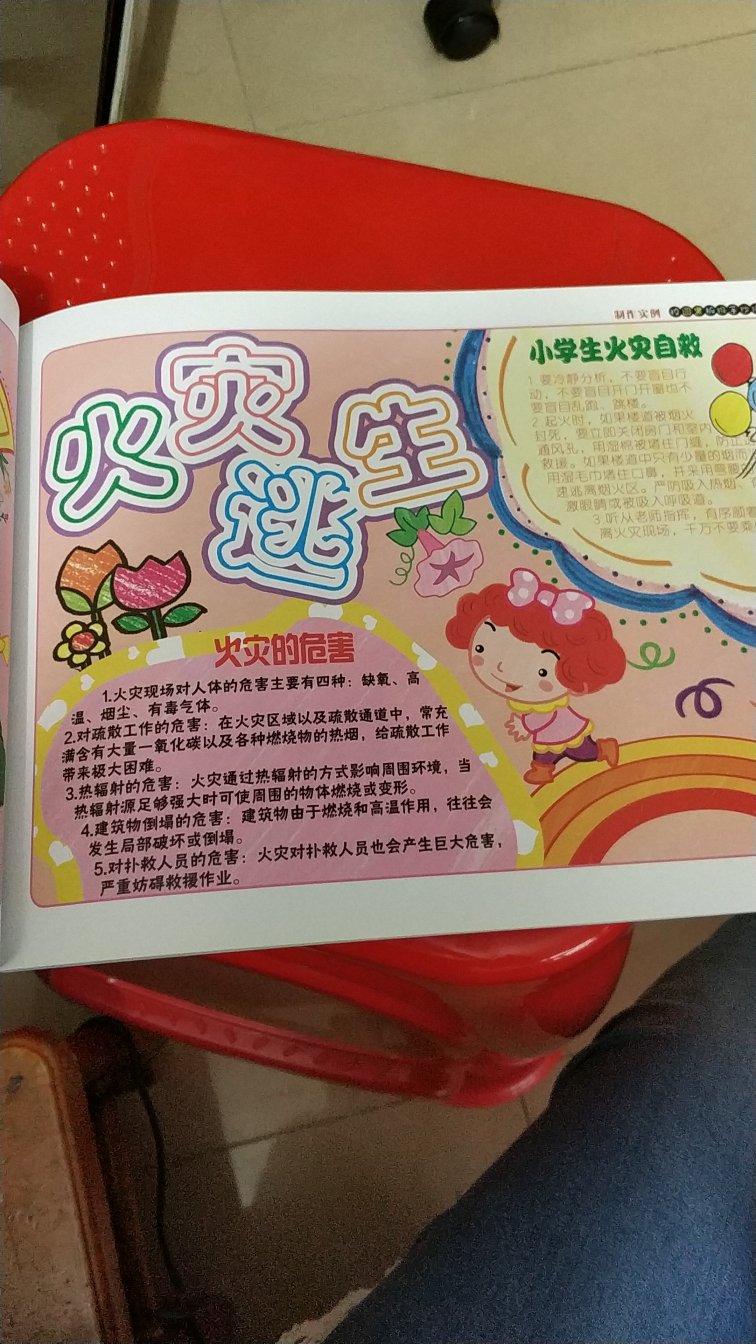 制作实例
火灾逃生
小学生火灾自救
1.要冷静分析，不要盲目行
动，不要盲目开门开窗也不
要盲目乱跑、跳楼。
2.起火时，如果楼道被烟火
封死，要立即关闭房门和室内
通风孔，用湿棉被堵住门缝，防止
救援。如果楼道中只有少量的烟而
用湿毛巾堵住口鼻，并采用弯腰
速逃离烟火区。严防吸入热烟、
激眼睛或被吸入呼吸道。
3.听从老师指挥，有序顺着
离火灾现场，千万不要乘
火灾的危害
1.火灾现场对人体的危害主要有四种：缺氧、高
温、烟尘、有毒气体。
2.对疏散工作的危害：在火灾区域以及疏散通道中，常充
满含有大量一氧化碳以及各种燃烧物的热烟，给疏散工作
带来极大困难。
3.热辐射的危害：火灾通过热辐射的方式影响周围环境，当
热辐射源足够强大时可使周围的物体燃烧或变形。
4.建筑物倒塌的危害：建筑物由于燃烧和高温作用，往往会
发生局部破坏或倒塌。
5.对扑救人员的危害：火灾对扑救人员也会产生巨大危害，
严重妨碍救援作业。